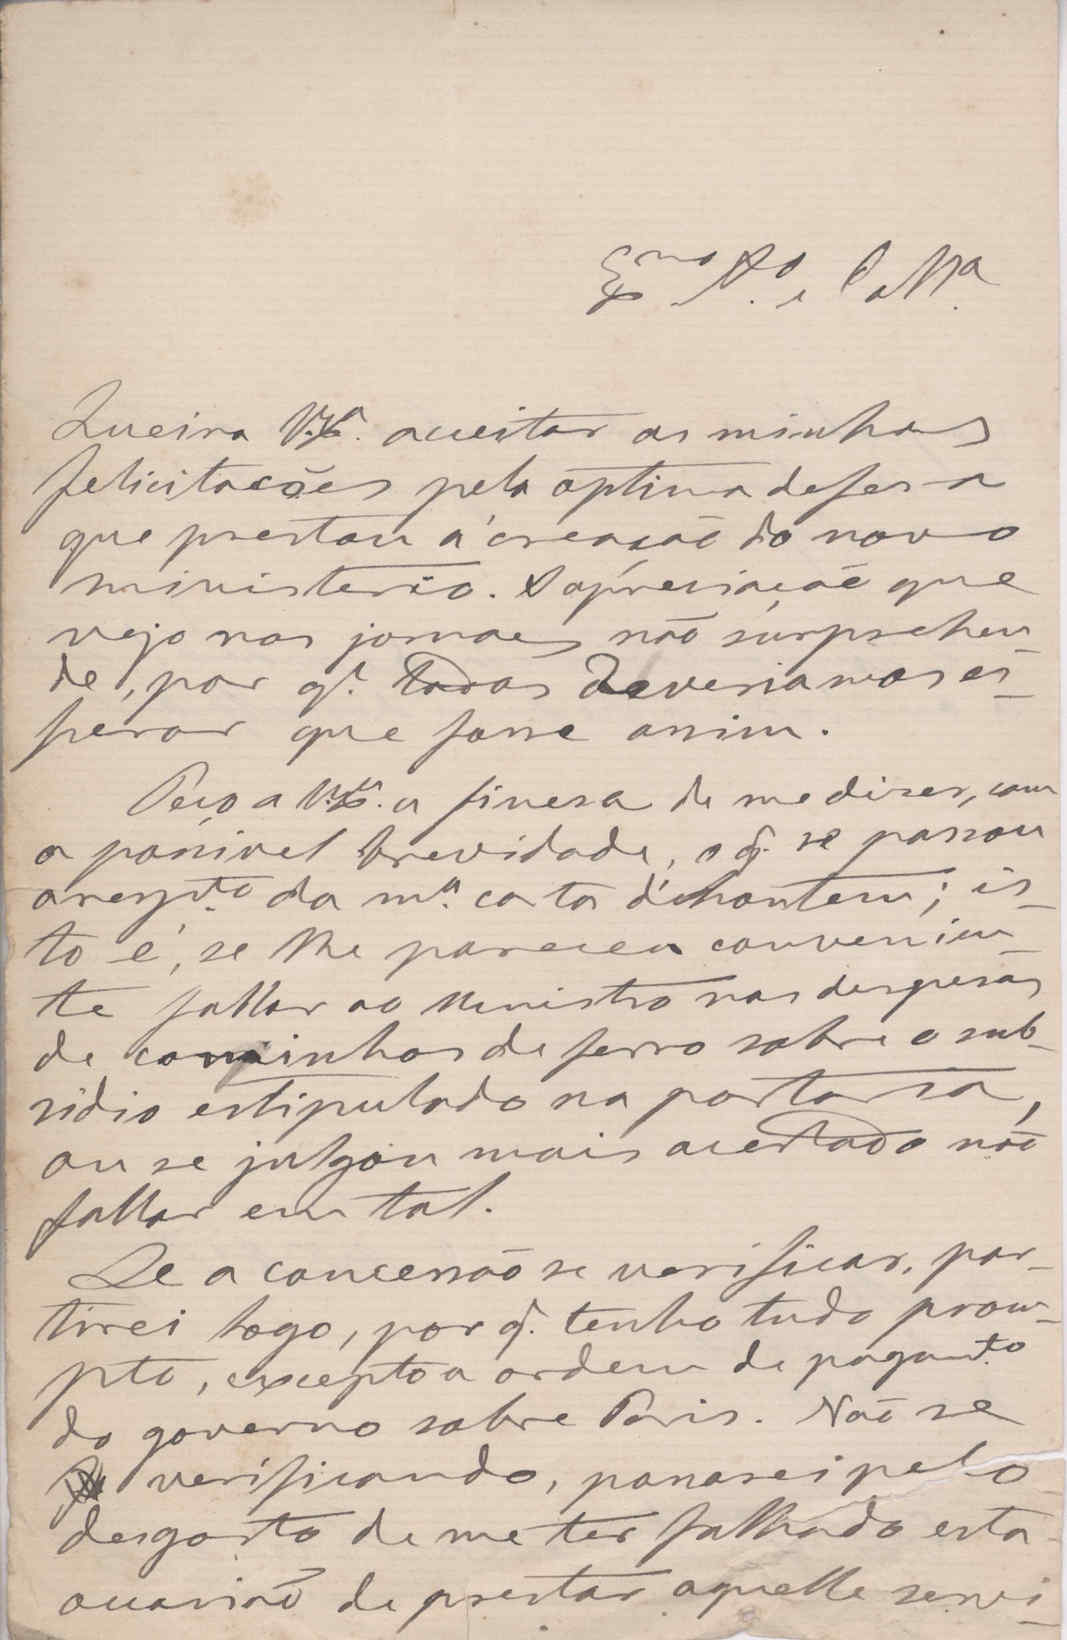 Ex.mo A.o e C.a M.a
Queira V. Ex.ª acceitar as minhas
felicitações pela optima defesa
que prestou á creação do novo
ministerio. A apreciação que
vejo nos jornaes não surprehen
de, por q.e todos deveriamos es-
perar que fosse assim.
Peço a V. Ex.ª a finesa de me dizer, com
a possivel brevidade, o q. se passou
a resp.to da m.ª carta d'hontem; is-
to é, se lhe pareceu convenien
te fallar ao Ministro nas despesas
de caminhos de ferro sobre o sub-
sidio estipulado na portaria,
ou se julgou mais acertado não
fallar em tal.
Se a concessão se verificar, par-
tirei logo, por q. tenho tudo prom-
pto, excepto a ordem de pagam.to
do governo sobre Paris. Não se
verificando, passarei pelo
desgosto de me ter falhado esta
occasião de prestar aquelle servi-